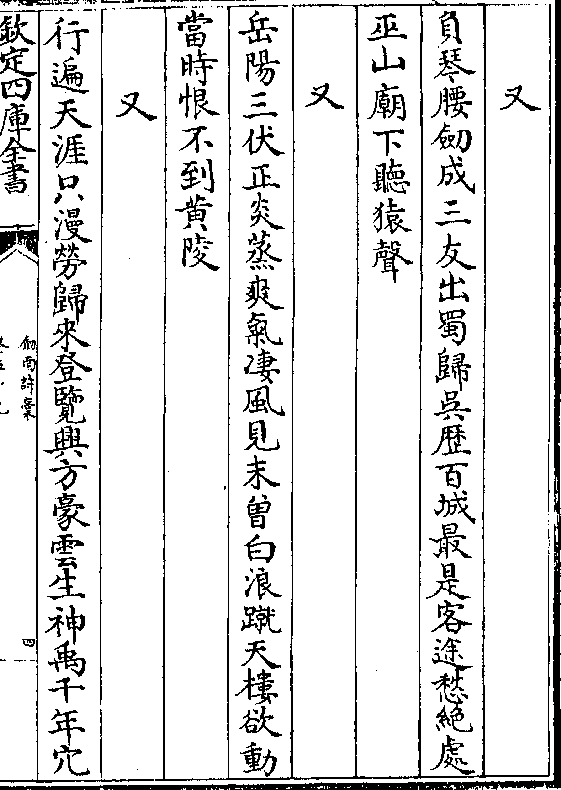 又
負琴腰劒成三友出蜀歸吳歴百城最是客途愁絶處
巫山廟下聽猿聲
又
岳陽三伏正炎蒸爽氣凄風見未曾白浪蹴天樓欲動
當時恨不到黄陵
又
行遍天涯只漫勞歸來登覽興方豪雲生神禹千年穴
欽定四庫全書
劒南詩稾
四